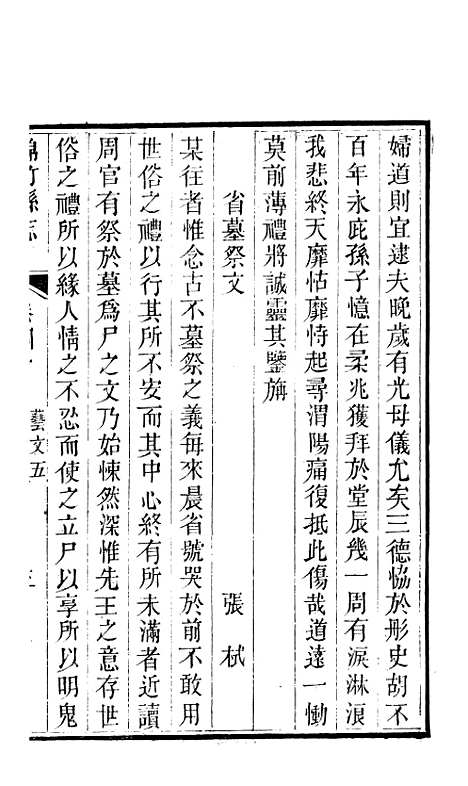 婦道則宜逮夫晚歲有光母儀允矣三德恊於彤史胡不
百年永庇孫子憶在柔兆獲拜於堂辰幾一周有淚淋浪
我悲終天靡怙靡恃起尋渭陽痛復抵此傷哉道遠一慟
莫前薄禮將誠靈其鑒旃
省墓祭文
張栻
某往者惟念古不墓祭之義每來晨省號哭於前不敢用
世俗之禮以行其所不安而其中心終有所未滿者近讀
周官有祭於墓爲尸之文乃始悚然深惟先王之意存世
俗之禮所以緣人情之不忍而使之立尸以享所以明鬼
藝文五